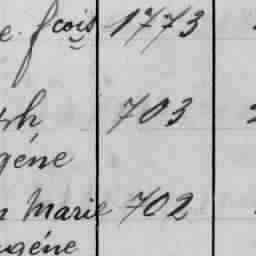 fcois 1773
703
géne
Marie 702
géne